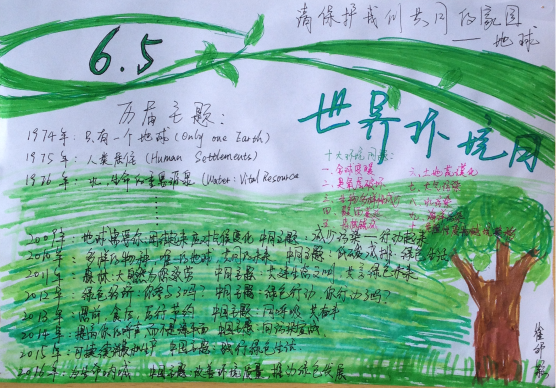 请保护我们共同的家园
——地球
6.5
世界环境日
历届主题:
1974年:只有一个地球(Only one Earth)
1975年:人类居住(Human Settlements)
1976年:水,生命的重要源泉(Water: Vital Resource
十大环境问题:
一、全球变暖
二、臭氧层破坏
三、生物多样性减少
四、酸雨
五、森林
六、土地荒漠化
七、大气污染
八、水污染
九、海洋污染
十、
2009年:地球需要你:团结起来应对气候变化 中国主题:减少污染——行动起来
2010年:多样的物种,唯一的地球,共同的未来 中国主题:低碳减排·绿色生活
2011年:森林:大自然为您效劳 中国主题:共建生态文明,共享绿色未来
2012年:绿色经济:你参与了吗? 中国主题:绿色行动,你行动了吗?
2013年:思前,食后,厉行节约 中国主题:同呼吸 共奋斗
2014年:提高你的呼声 而不是海平面 中国主题:向污染宣战
2015年:可持续消费和生产 中国主题:践行绿色生活
2016年:为生命呐喊 中国主题:改善环境质量 推动绿色发展